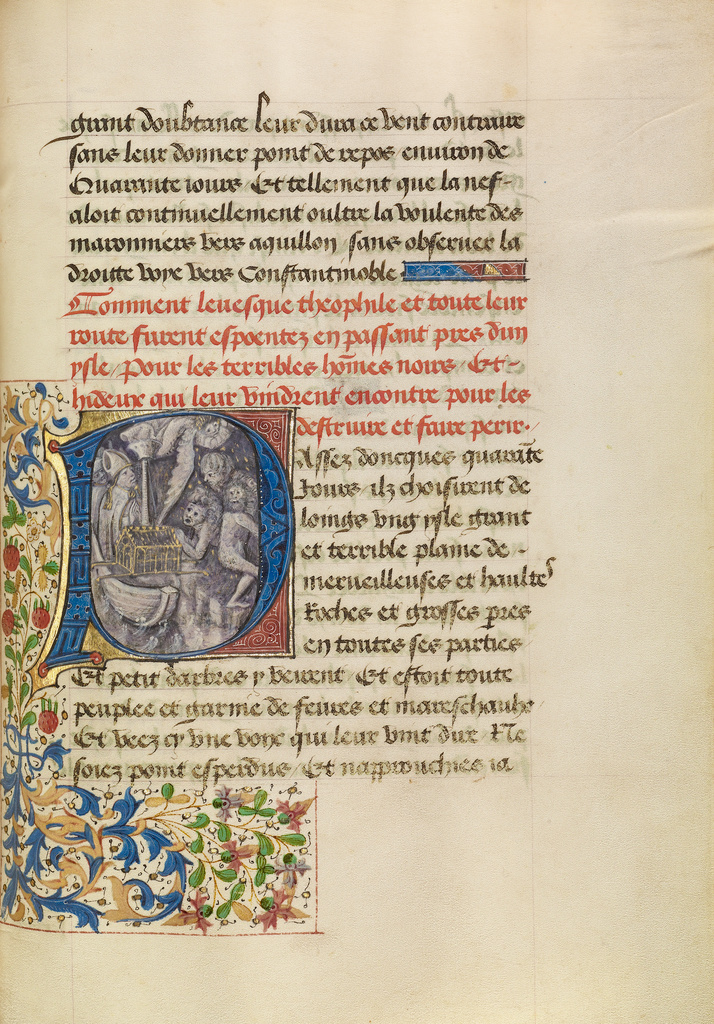 grant doubtance leur dura ce vent contraire
sans leur donner point de repos environ de
Quarante iours / Et tellement que la nef-
aloit continuellement oultre la voulente des
maronniers vers aquillon / sans observer la
droitte voye vers Constantinoble
Comment levesque theophile et toute leur
route furent espoentez en passant pres dun
ysle / Pour les terribles hõmes noirs / Et-
hideux qui leur vindrent encontre pour les
destruire et faire perir.
Assez doncques quarãte
Iours / ilz choisirent de
loings ung ysle grant
et terrible plaine de -
merveilleuses et haultes
Roches et grosses pres
en toutes ses parties
Et petit darbres y veirent / Et estoit toute
peuplee et garnie de fevres et mareschaulx
Et veez cy une voix qui leur vint dire Ne
soiez point esperdus / Et napprouchies ia